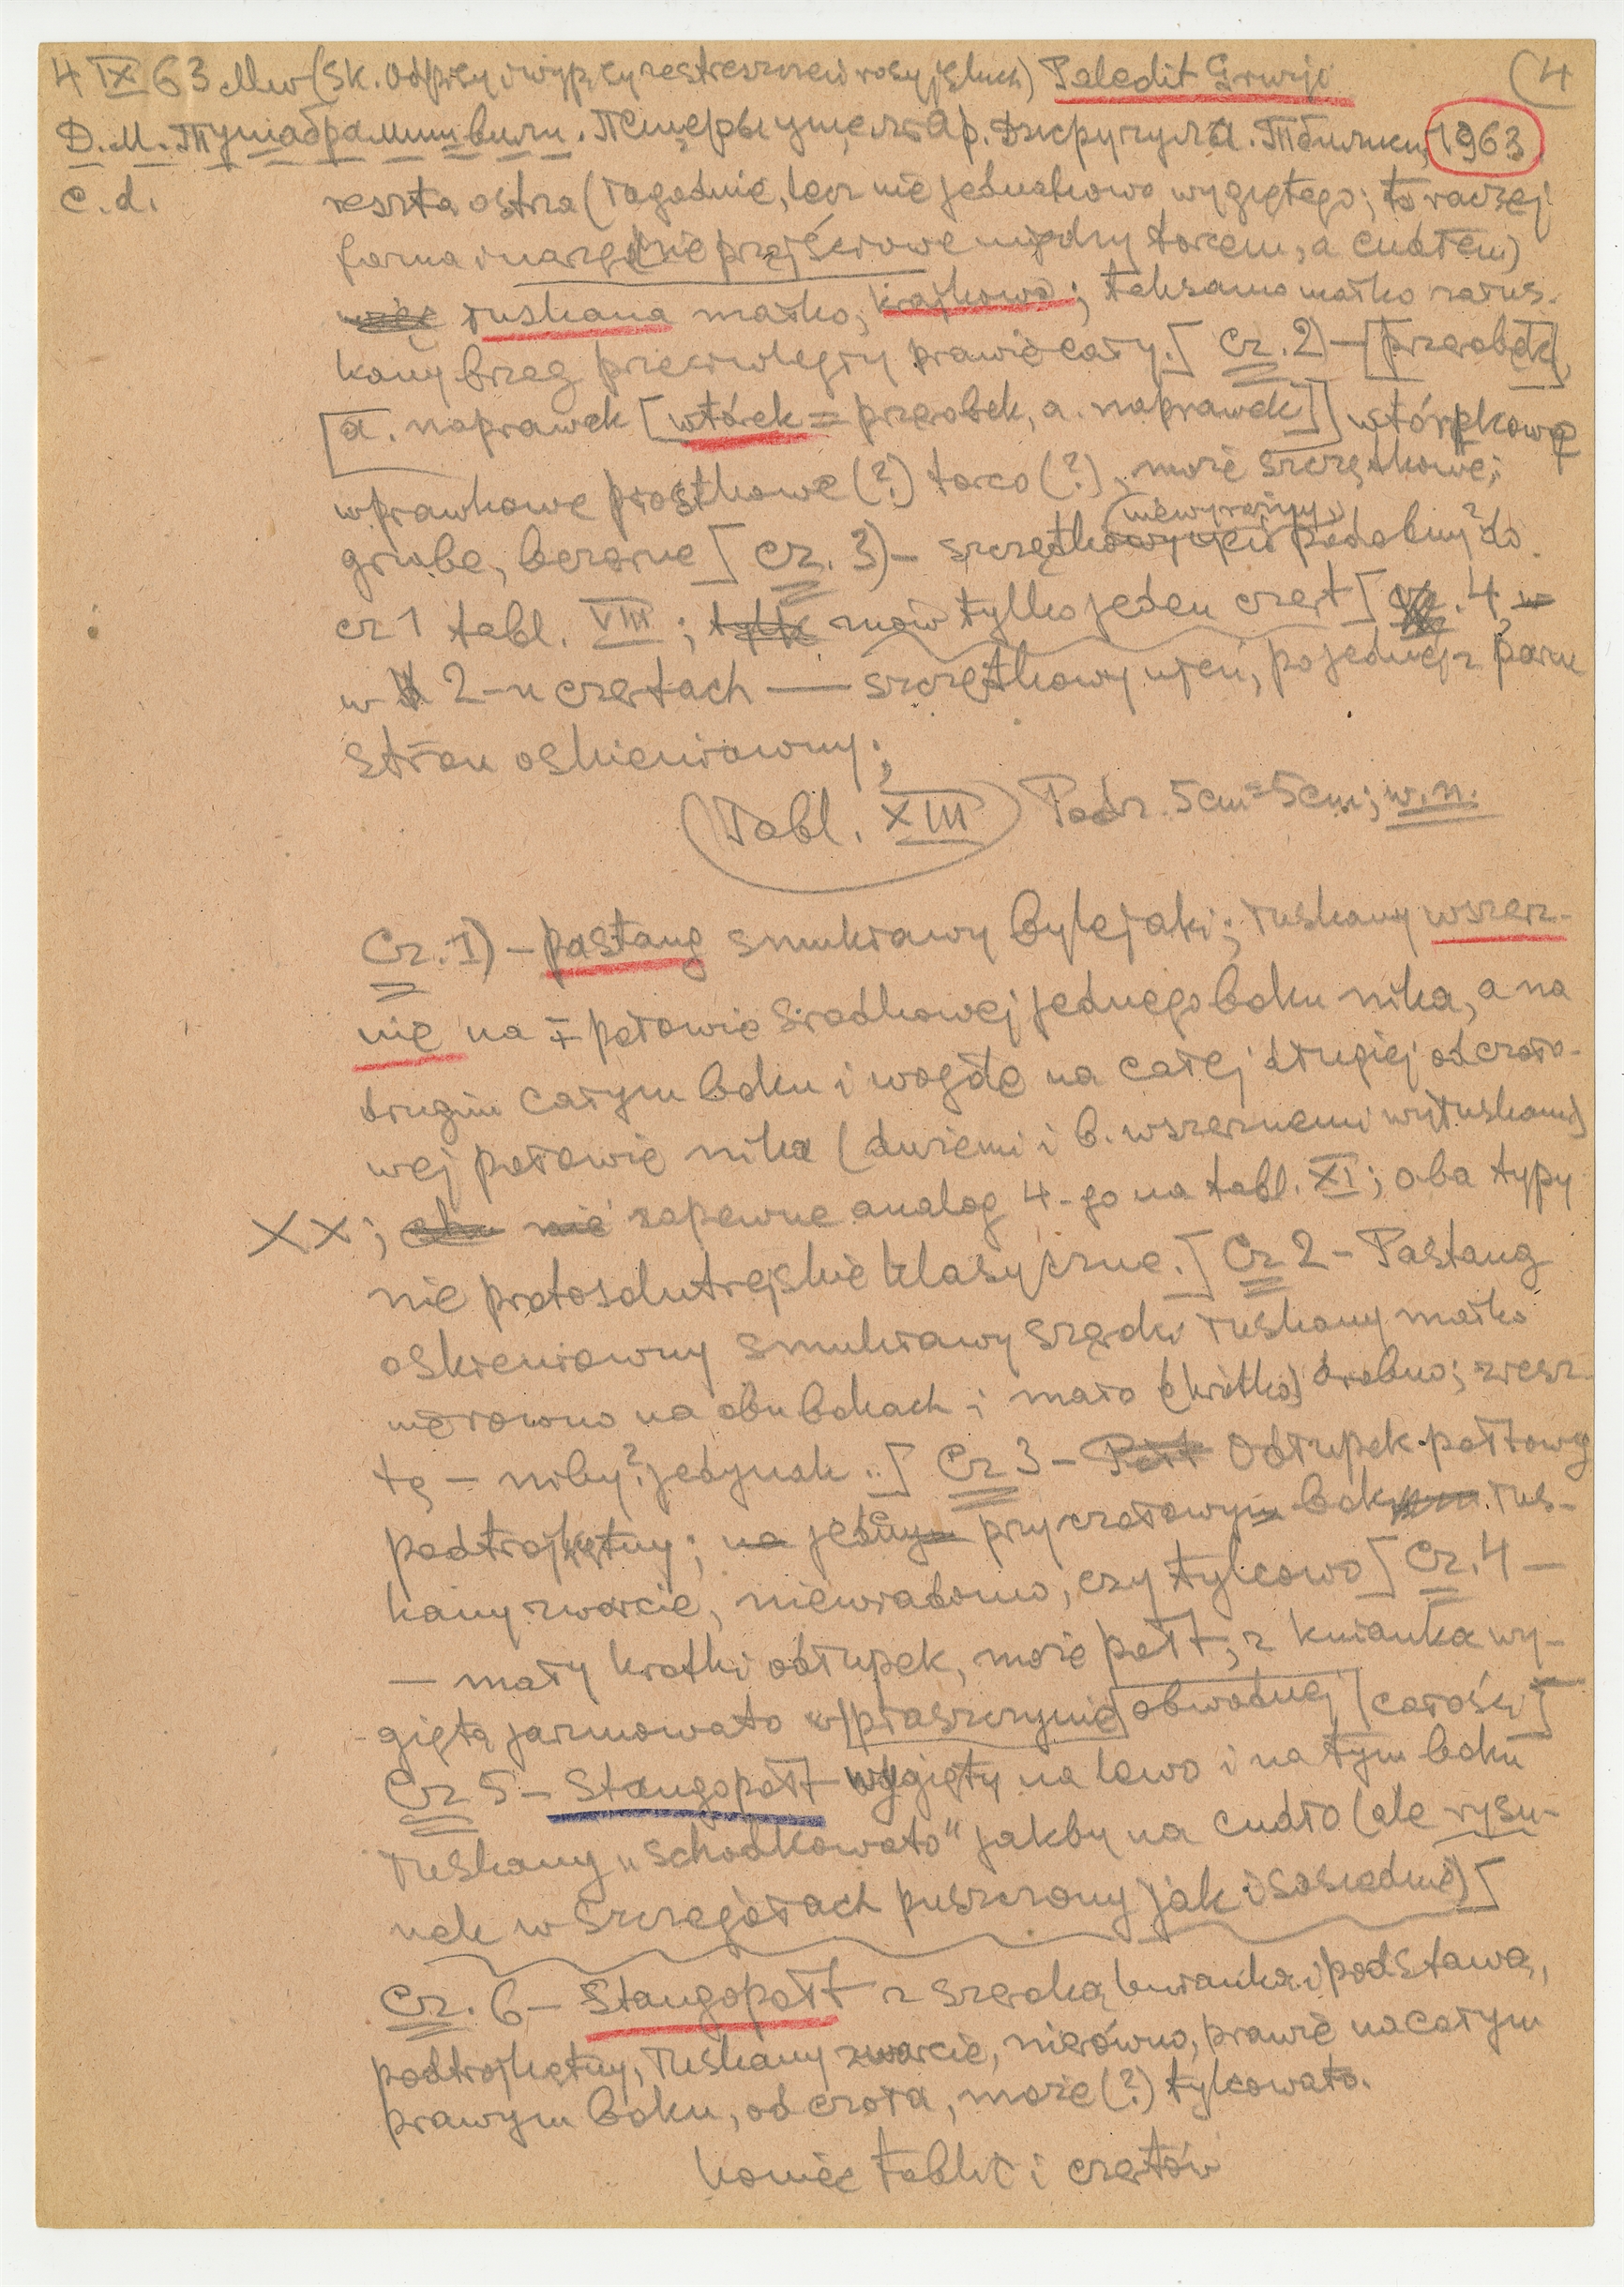 4 IX 63 Mw (Sk. odpisy i wypisy ze streszczeń rosyjskich) Paledit Gruzjo (4
Д.М. Тушабрамишвили. Пещеры ущелья р. Джручула. Тбилиси, 1963
c.d. reszta ostrza (łagodnie, lecz nie jednakowo wygiętego; to raczej
forma i narzędzie przejściowe między torcem, a cudłem)
łuskana miałko, krajkowo; taksamo miałko załus-
kany brzeg przeciwległy prawie cały.] Cz. 2) – [przerobek,
[a. naprawek [wtórek = przerobek, a. naprawek]] wtórkowe
wprawkowe prostkowe (?) torco (?), może szczątkowe;
grube, bezorne [ Cz. 3) – szczątkowy (niewyraźny) podobny do
cz 1 tabl. VIII; znów tylko jeden czert [ cz. 4,
w 2-u czertach — szczątkowy wień, po jednej z paru
stron oskieniawny;
(Tabl. XIII) Podz. 5cm = 5cm; w.n.
Cz. 1) – pastang smukławy bylejaki; łuskany wszerz-
nie na ± połowie środkowej jednego boku nika, a na
drugim całym boku i wogóle na całej drugiej odczoło-
wej połowie nika (dużemi i b. wszernemi wyłuskami)
XX; zapewne analog 4-go na tabl. XI; oba typy
nie protosolutrejskie klasyczne.] Cz 2 – Pastang
oskieniawny smukławy szędki łuskany miałko
nierówno na obu bokach i mało (krótko) drobno; zresz-
tą – niby? jedynak ..] Cz 3 – Odłupek połtowy
podtrójkątny; jeden przyczołowy bok łus-
kany zwarcie, niewiadomo, czy tylcowo [ Cz. 4 –
– mały krótki odłupek, może połt, z kwianka wy-
giętą jarzmowato w płaszczyźnie obwodnej [całości]
Cz 5 – Stangopołt wygięty na lewo i na tym boku
łuskany „schodkowato" jakby na cudło (ale rysu-
nek w szczegółach puszczony jak i sąsiednie)]
Cz. 6 – Stangopołt z szeroką kwianką i podstawą,
podtrójkątny, łuskany zwarcie, nierówno, prawie na całym
prawym boku, od czoła, może (?) tylcowato.
koniec tablic i czertów